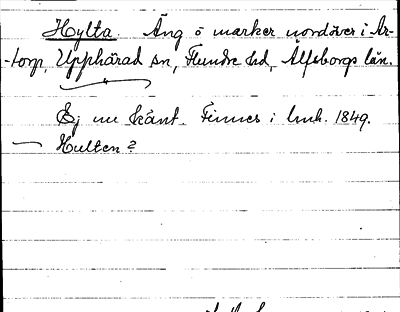 Hylta. Äng o marker nordöver i Ar-
-torp, Upphärad sn, Flundre hd, Älfsborgs län.
Ej nu känt. Finnes i lmk. 1849.
— Hulten?